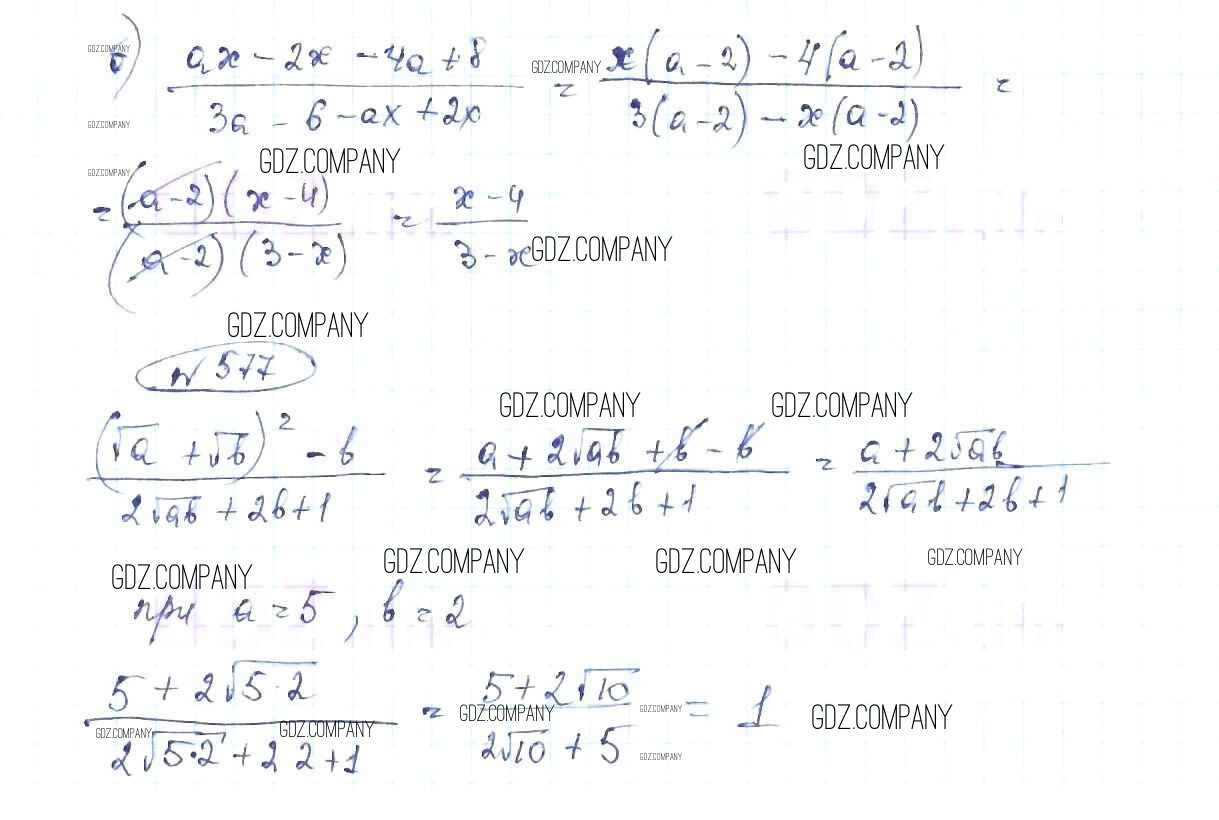 GDZ.COMPANY
б) (ax - 2x - 4a + 8)/(3a - 6 - ax + 2x) = (x(a - 2) - 4(a - 2))/(3(a - 2) - x(a - 2)) =
GDZ.COMPANY
GDZ.COMPANY
GDZ.COMPANY GDZ.COMPANY
GDZ.COMPANY
= ((a - 2)(x - 4))/((a - 2)(3 - x)) = (x - 4)/(3 - x)
GDZ.COMPANY
GDZ.COMPANY
№ 577
GDZ.COMPANY GDZ.COMPANY
((√a + √b)² - b)/(2√ab + 2b + 1) = (a + 2√ab + b - b)/(2√ab + 2b + 1) = (a + 2√ab)/(2√ab + 2b + 1)
GDZ.COMPANY GDZ.COMPANY GDZ.COMPANY GDZ.COMPANY
при a = 5, b = 2
(5 + 2√5·2)/(2√5·2 + 2 2 + 1) = (5 + 2√10)/(2√10 + 5) = 1
GDZ.COMPANY GDZ.COMPANY GDZ.COMPANY GDZ.COMPANY GDZ.COMPANY
GDZ.COMPANY